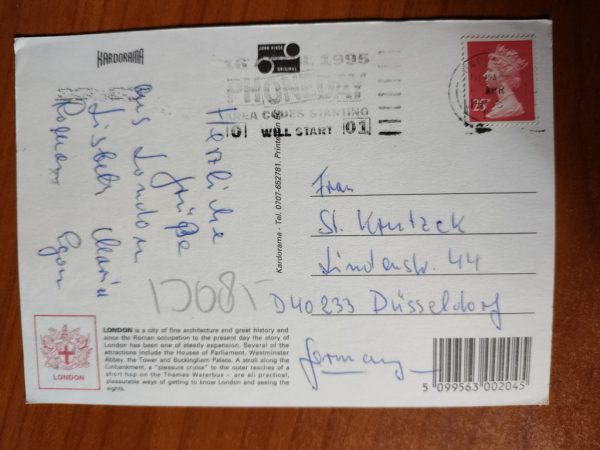 KARDORAMA
16 APRIL 1995
PHONEDAY
AREA CODES STARTING
0 WILL START 01
25
Herzliche
Grüße
aus London
Lisbeth Maria
Egon
Kardorama - Tel. 0707-652781. Printed in
Frau
St. Krutzek
Lindenstr. 44
D40233 Düsseldorf
Germany
LONDON is a city of fine architecture and great history and
since the Roman occupation to the present day the story of
London has been one of steady expansion. Several of the
attractions include the Houses of Parliament, Westminster
Abbey, the Tower and Buckingham Palace. A stroll along the
Embankment, a "pleasure cruise" to the outer reaches of a
short hop on the Thames Waterbus – are all practical,
pleasurable ways of getting to know London and seeing the
sights.
LONDON
5 099563 002045